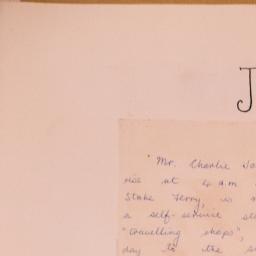 J
" Mr. Charlie
rise at 4 a.m
Stoke Ferry, is
a self-service
"travelling shops",
day to the